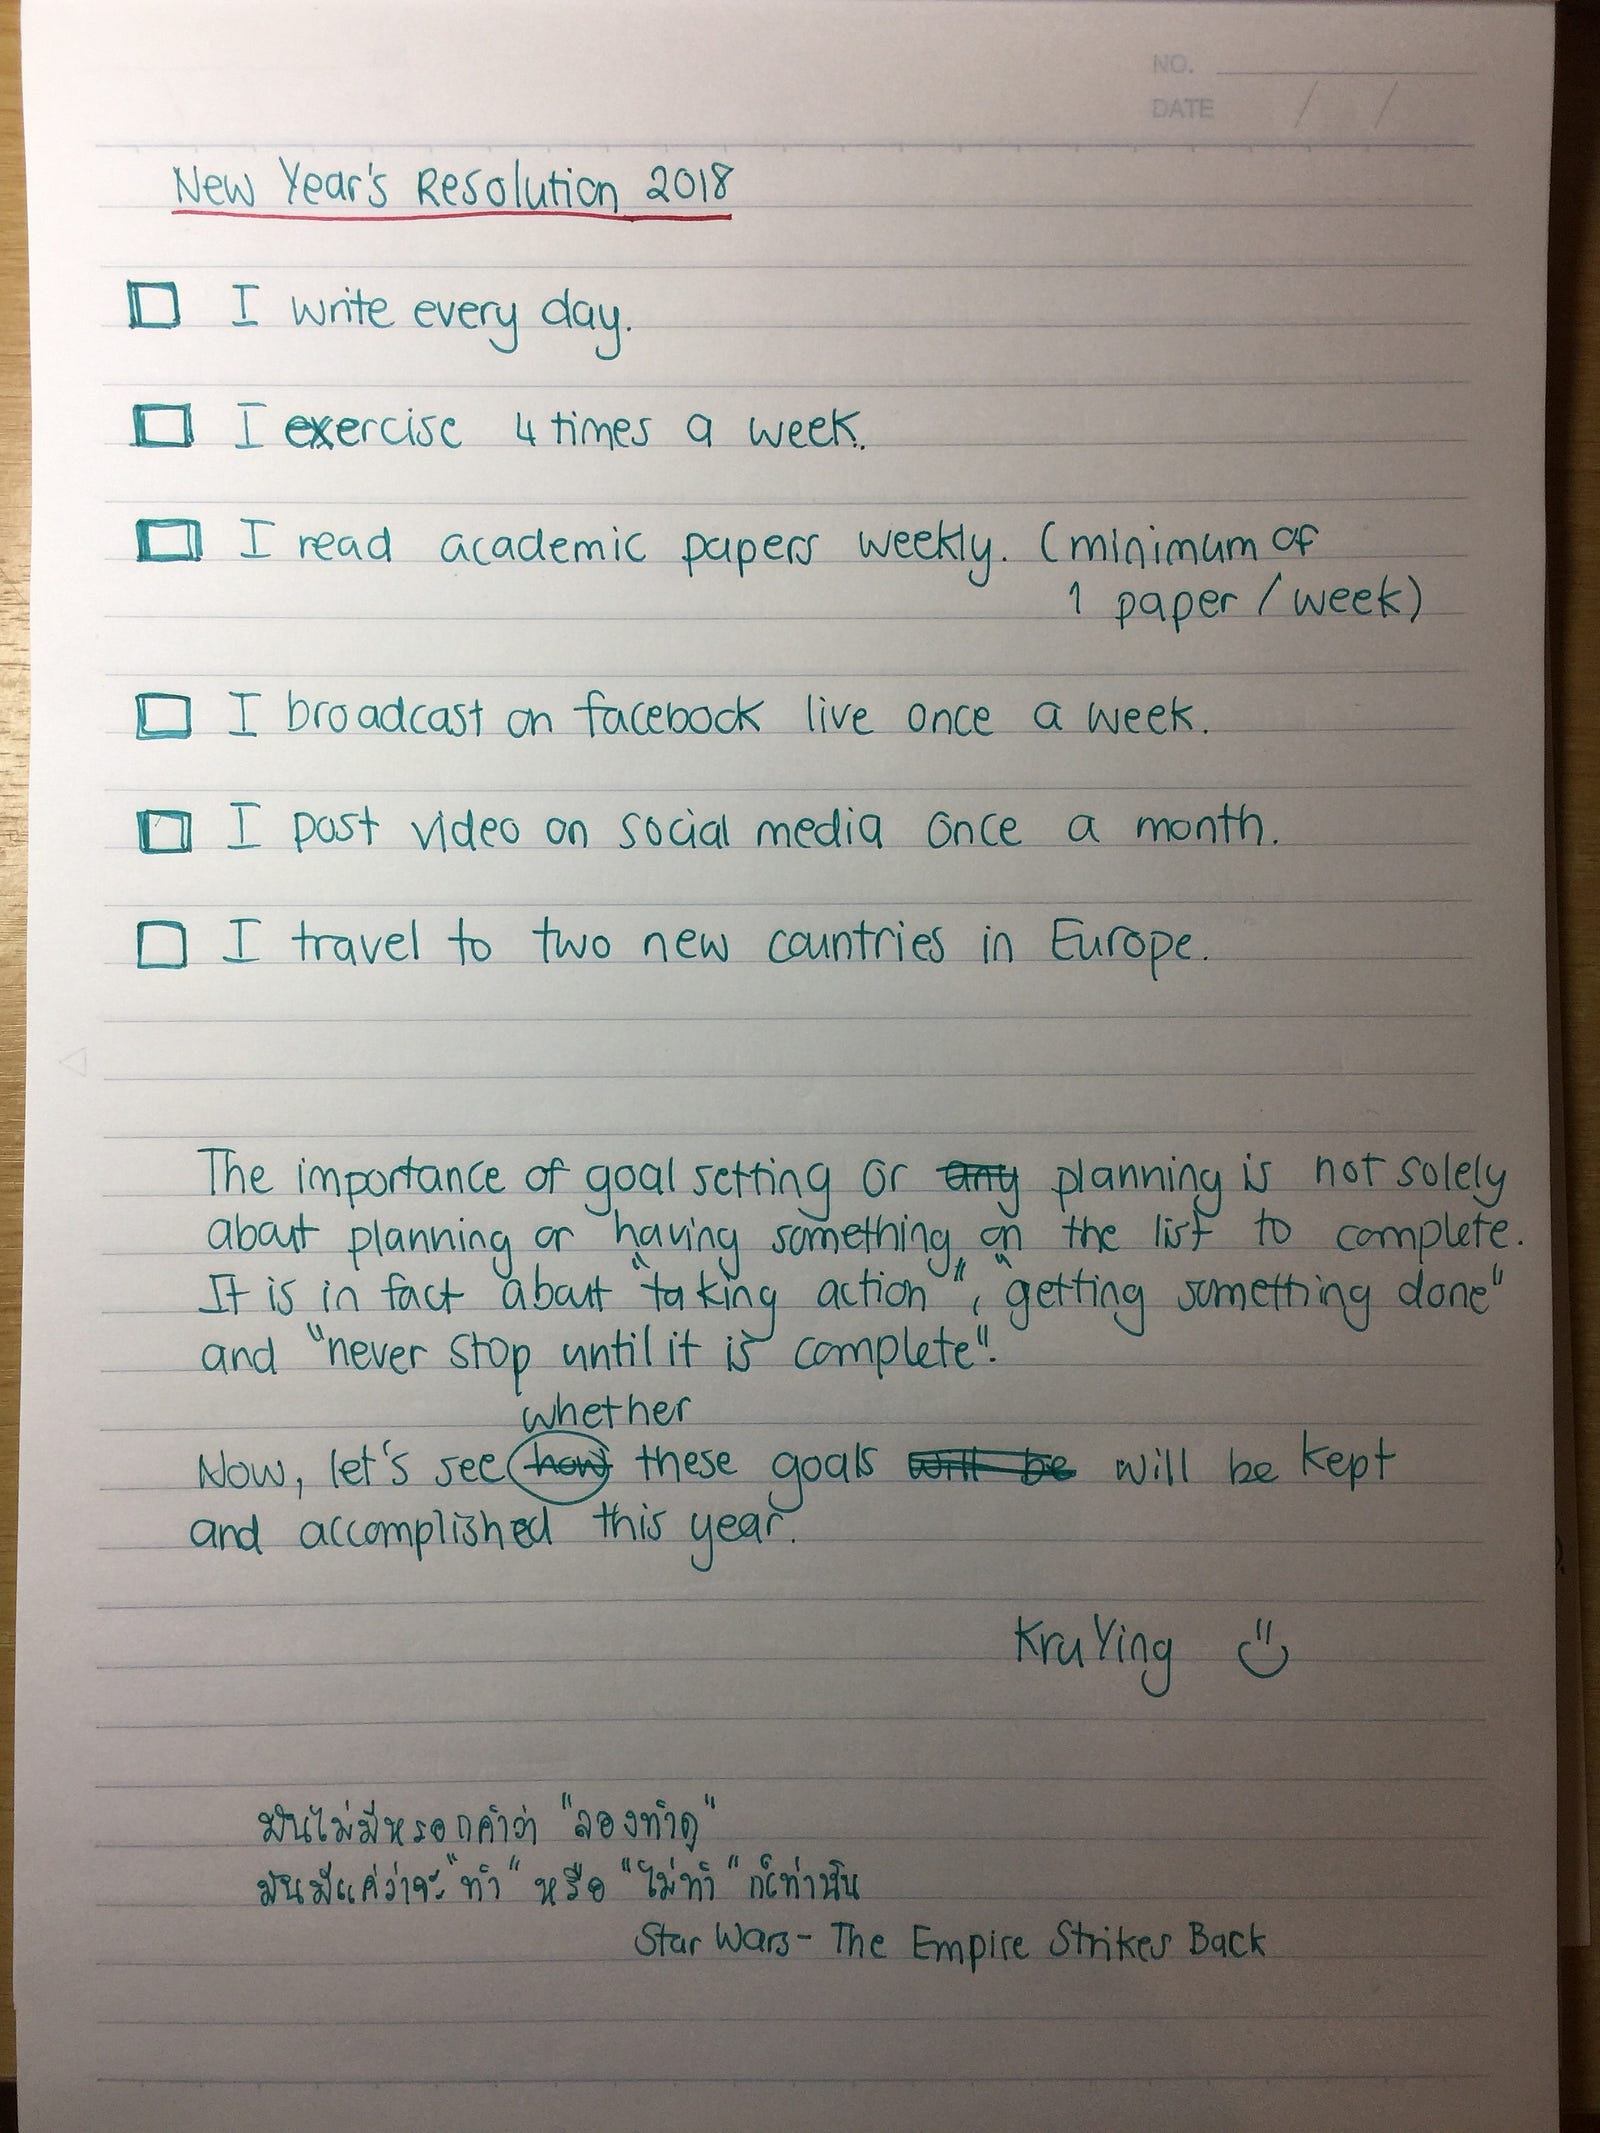 NO.
DATE / /
New Year's Resolution 2018
I write every day.
I exercise 4 times a week.
I read academic papers weekly. (minimum of
1 paper / week)
I broadcast on facebook live once a week.
I post video on social media once a month.
I travel to two new countries in Europe.
The importance of goal setting or any planning is not solely
about planning or having something on the list to complete.
It is in fact about "taking action", "getting something done"
and "never stop until it is complete".
whether
Now, let's see how these goals will be will be kept
and accomplished this year.
Kru Ying
มันไม่มีหรอกคำว่า "ลองทำดู"
มันมีแค่ว่าจะ "ทำ" หรือ "ไม่ทำ" ก็เท่านั้น
Star Wars - The Empire Strikes Back